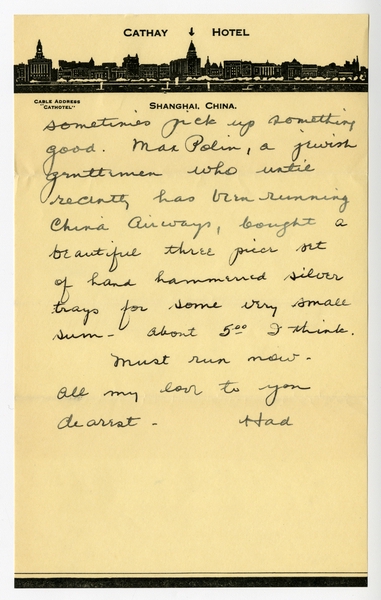 CATHAY ↓ HOTEL
CABLE ADDRESS
"CATHOTEL"
SHANGHAI, CHINA.
sometimes pick up something
good. Max Polin, a jewish
gentlemen who until
recently has been running
China Airways, bought a
beautiful three piece set
of hand hammered silver
trays for some very small
sum - about 5⁰⁰ I think.
Must run now -
All my love to you
dearest - Had